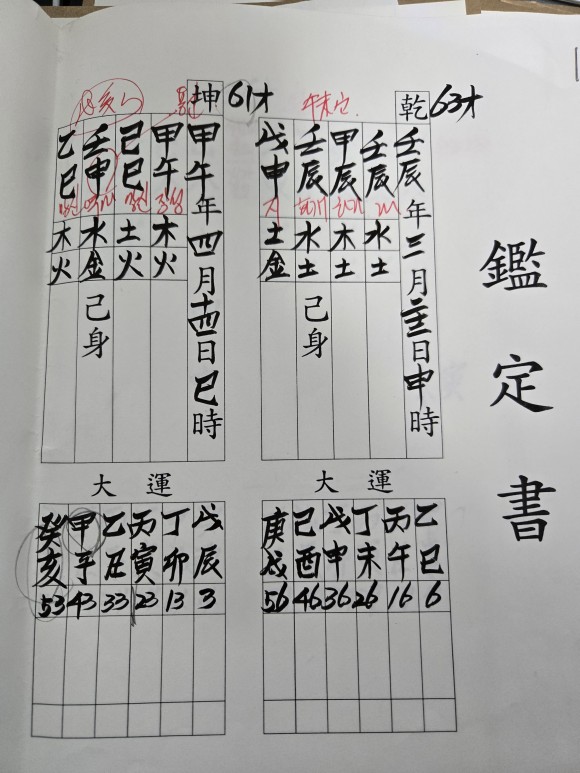 鑑定書
乾 63才
壬辰年三月二十三日申時
壬辰水土
甲辰木土
壬辰水土己身
戊申土金
大運
乙巳6
丙午16
丁未26
戊申36
己酉46
庚戌56
坤 61才
甲午年四月十四日巳時
甲午木火
己巳土火
壬申水金己身
乙巳木火
大運
戊辰3
丁卯13
丙寅23
乙丑33
甲子43
癸亥53